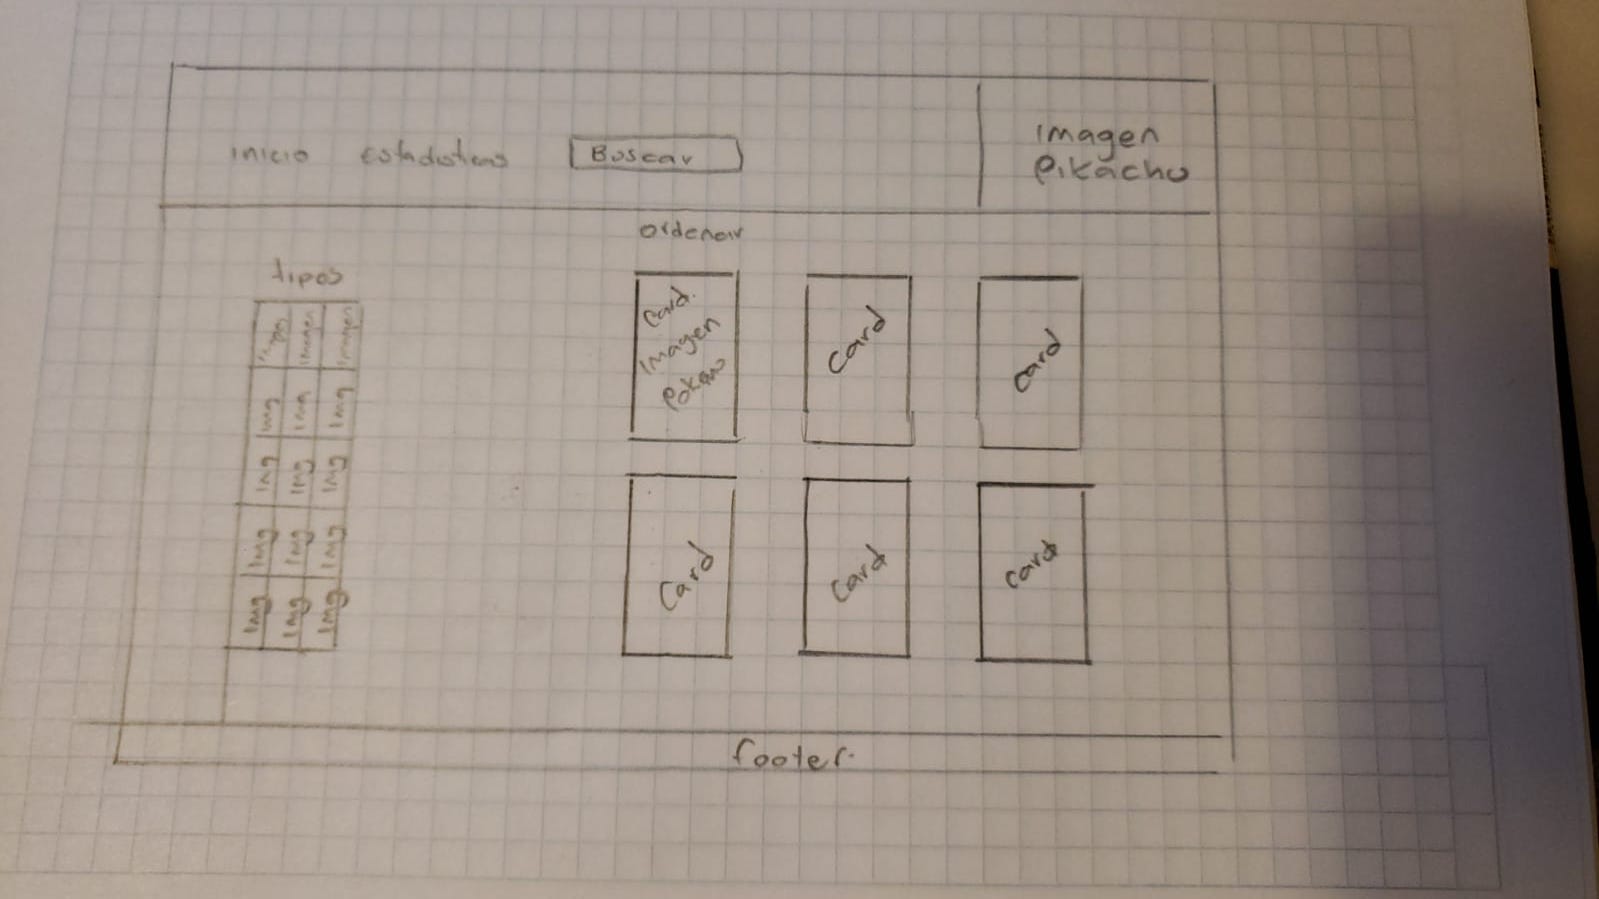 inicio estadisticas Buscar
Imagen
Pikachu
ordenar
tipos
Imagen Imagen
Img Img Img
Img Img Img
Img Img Img
Img Img Img
Card
Imagen
Card
Card
Card
Card
Card
footer